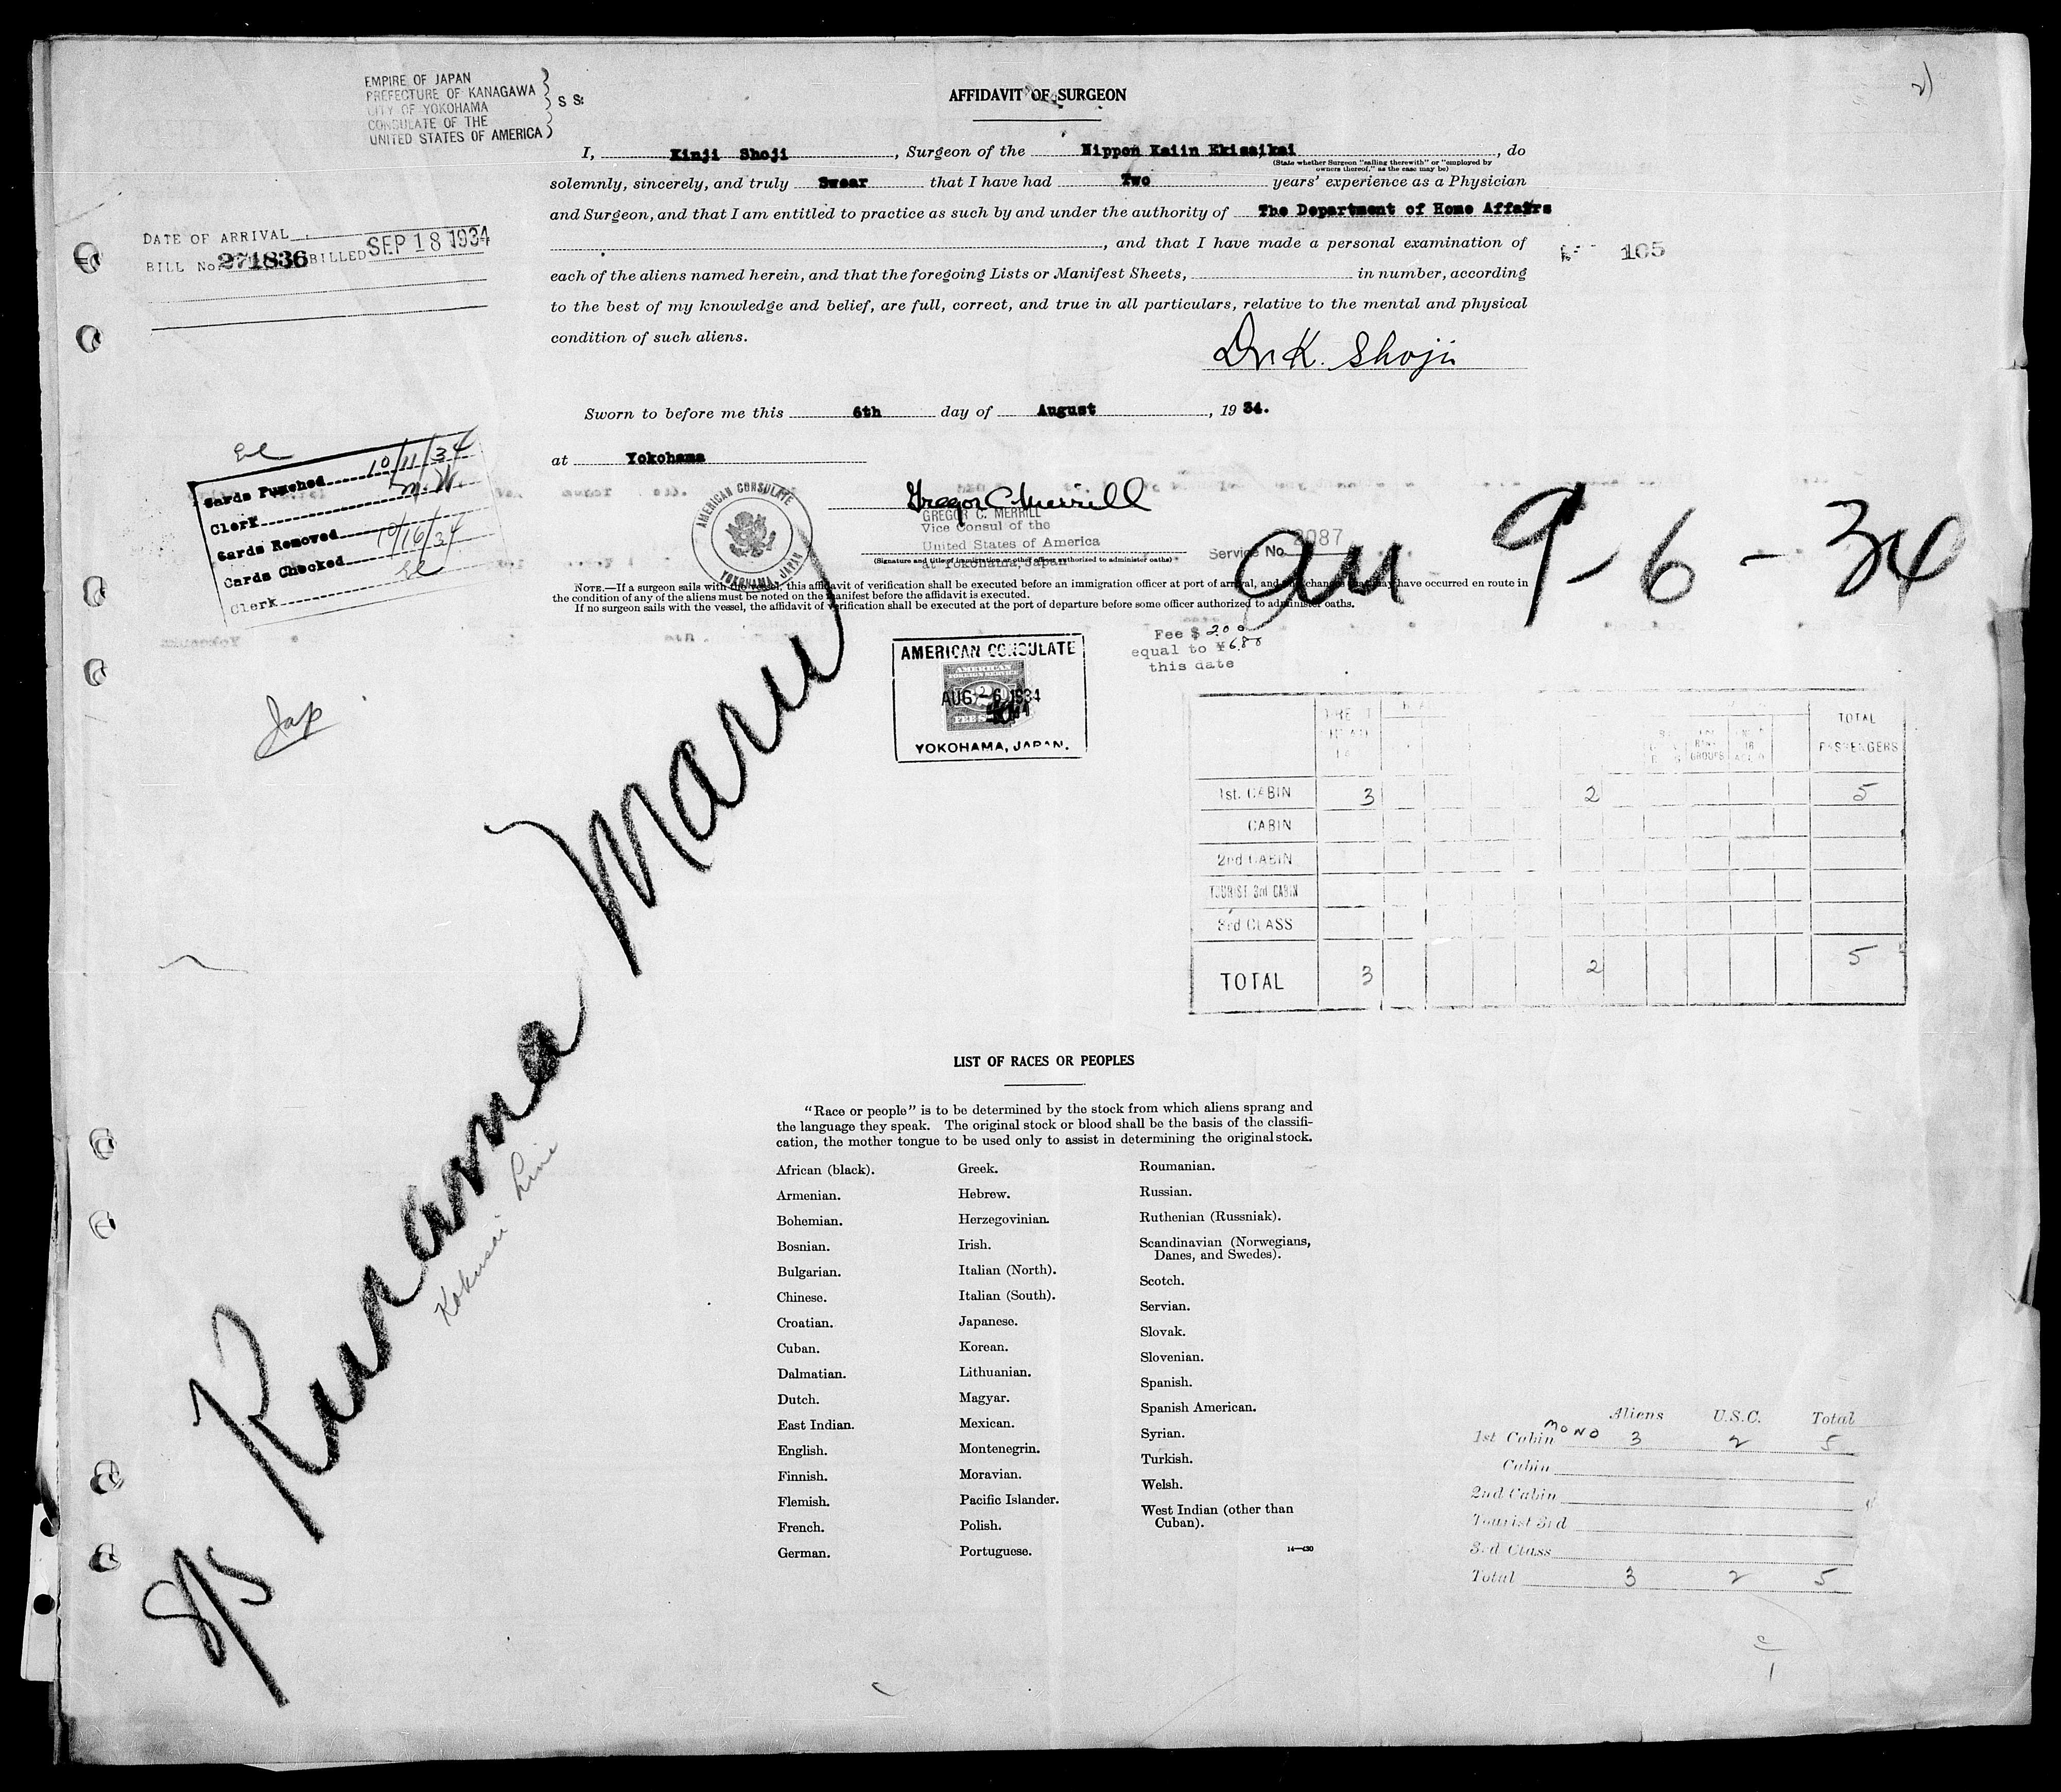 EMPIRE OF JAPAN
PREFECTURE OF KANAGAWA
CITY OF YOKOHAMA
CONSULATE OF THE
UNITED STATES OF AMERICA
S S:
AFFIDAVIT OF SURGEON
I, Kinji Shoji, Surgeon of the Nippon Kaiin Ekisaikai, do
(State whether Surgeon "sailing therewith" or "employed by
owners thereof," as the case may be)
solemnly, sincerely, and truly Swear that I have had Two years' experience as a Physician
and Surgeon, and that I am entitled to practice as such by and under the authority of The Department of Home Affairs
, and that I have made a personal examination of
each of the aliens named herein, and that the foregoing Lists or Manifest Sheets, in number, according
to the best of my knowledge and belief, are full, correct, and true in all particulars, relative to the mental and physical
condition of such aliens.
Dr. K. Shoji
DATE OF ARRIVAL
BILL No. 271836 BILLED SEP 18 1934
105
Sworn to before me this 6th day of August, 19 34.
at Yokohama
Cards Punched 10/11/34
Clerk M.W.
Cards Removed
Cards Checked 10/16/34
Clerk
AMERICAN CONSULATE
YOKOHAMA, JAPAN
Gregor C. Merrill
GREGOR C. MERRILL
Vice Consul of the
United States of America
at Yokohama, Japan
(Signature and title of immigrant or other officer authorized to administer oaths)
Service No. 2087
9-6-34
NOTE.—If a surgeon sails with the vessel, this affidavit of verification shall be executed before an immigration officer at port of arrival, and any changes that may have occurred en route in
the condition of any of the aliens must be noted on the manifest before the affidavit is executed.
If no surgeon sails with the vessel, the affidavit of verification shall be executed at the port of departure before some officer authorized to administer oaths.
Fee $ 2.00
equal to ¥ 6.80
this date
AMERICAN CONSULATE
AMERICAN
FOREIGN SERVICE
AUG -6 1934
YOKOHAMA, JAPAN.
Jap
TOTAL
PASSENGERS
1st. CABIN 3 2 5
CABIN
2nd CABIN
TOURIST 3rd CABIN
3rd CLASS
TOTAL 3 2 5
S/S Kurama Maru
Kokusai Line
LIST OF RACES OR PEOPLES
"Race or people" is to be determined by the stock from which aliens sprang and
the language they speak. The original stock or blood shall be the basis of the classifi-
cation, the mother tongue to be used only to assist in determining the original stock.
African (black).
Armenian.
Bohemian.
Bosnian.
Bulgarian.
Chinese.
Croatian.
Cuban.
Dalmatian.
Dutch.
East Indian.
English.
Finnish.
Flemish.
French.
German.
Greek.
Hebrew.
Herzegovinian.
Irish.
Italian (North).
Italian (South).
Japanese.
Korean.
Lithuanian.
Magyar.
Mexican.
Montenegrin.
Moravian.
Pacific Islander.
Polish.
Portuguese.
Roumanian.
Russian.
Ruthenian (Russniak).
Scandinavian (Norwegians,
Danes, and Swedes).
Scotch.
Servian.
Slovak.
Slovenian.
Spanish.
Spanish American.
Syrian.
Turkish.
Welsh.
West Indian (other than
Cuban).
14—430
Aliens U.S.C. Total
1st Cabin MONO 3 2 5
Cabin
2nd Cabin
Tourist 3rd
3rd Class
Total 3 2 5